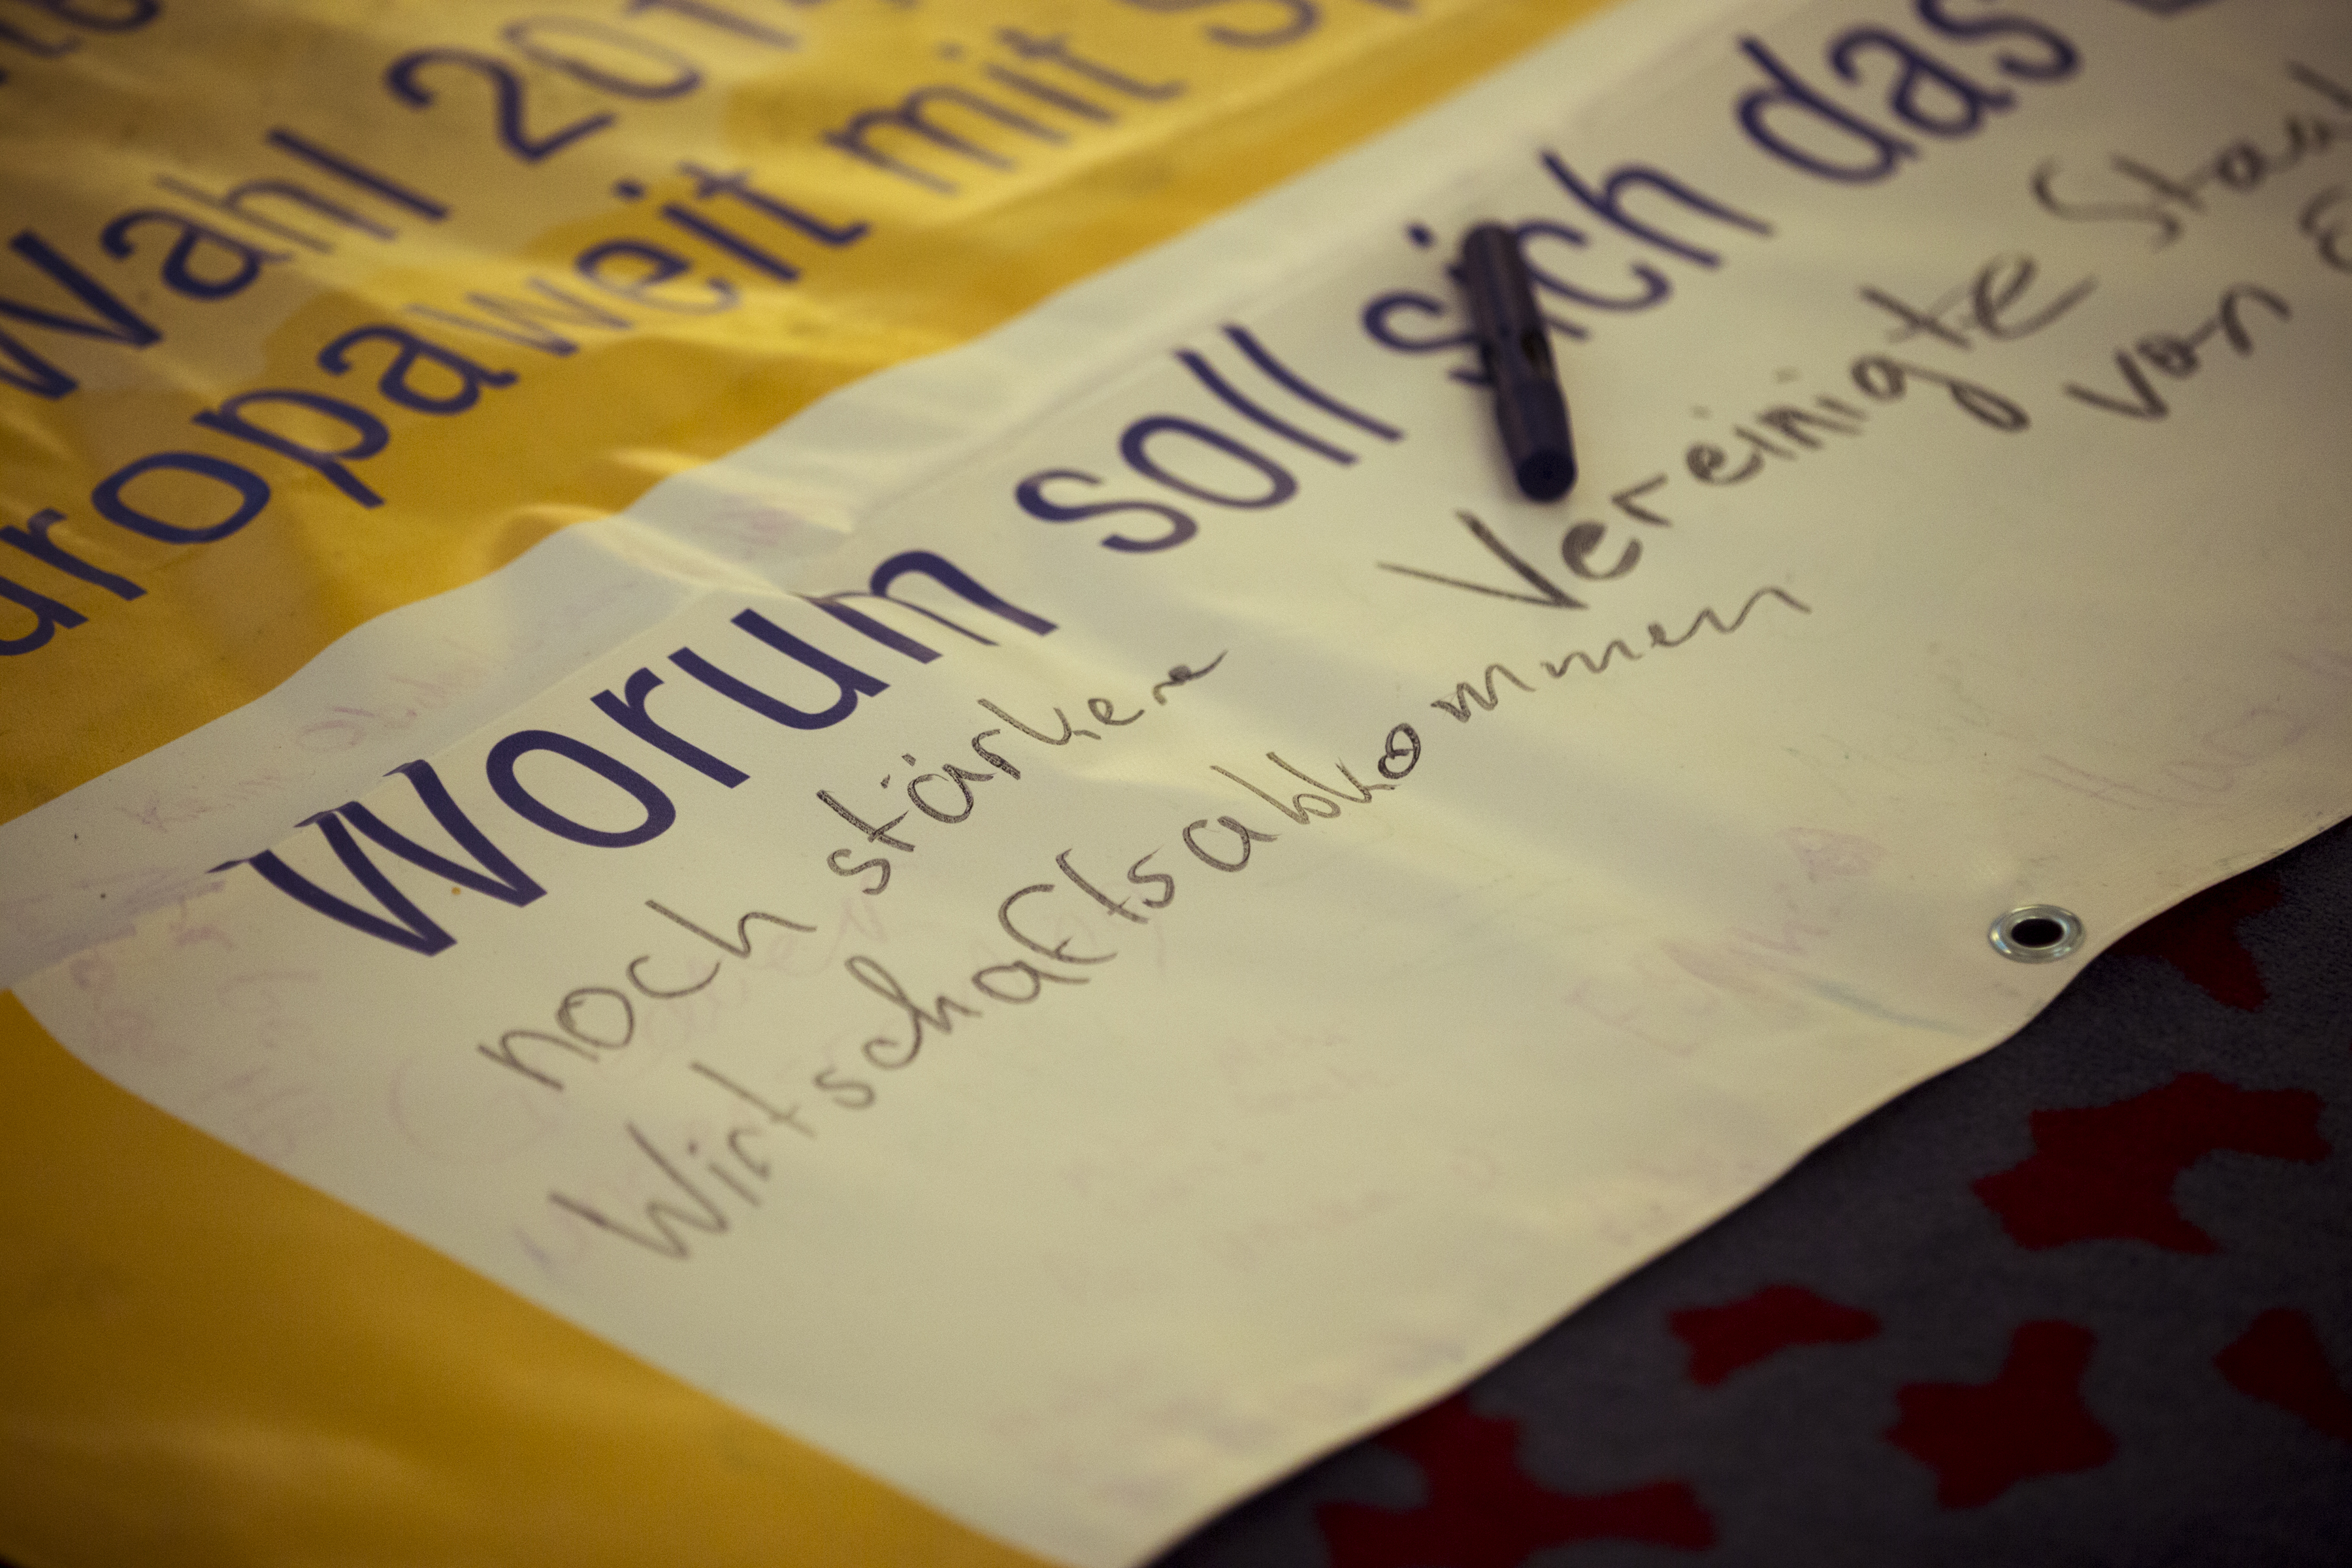 Wahl 201
uropaweit mit S
Worum soll sich das
Vereinigte Staa
von
noch stärkere
Wirtschaftsabkommen